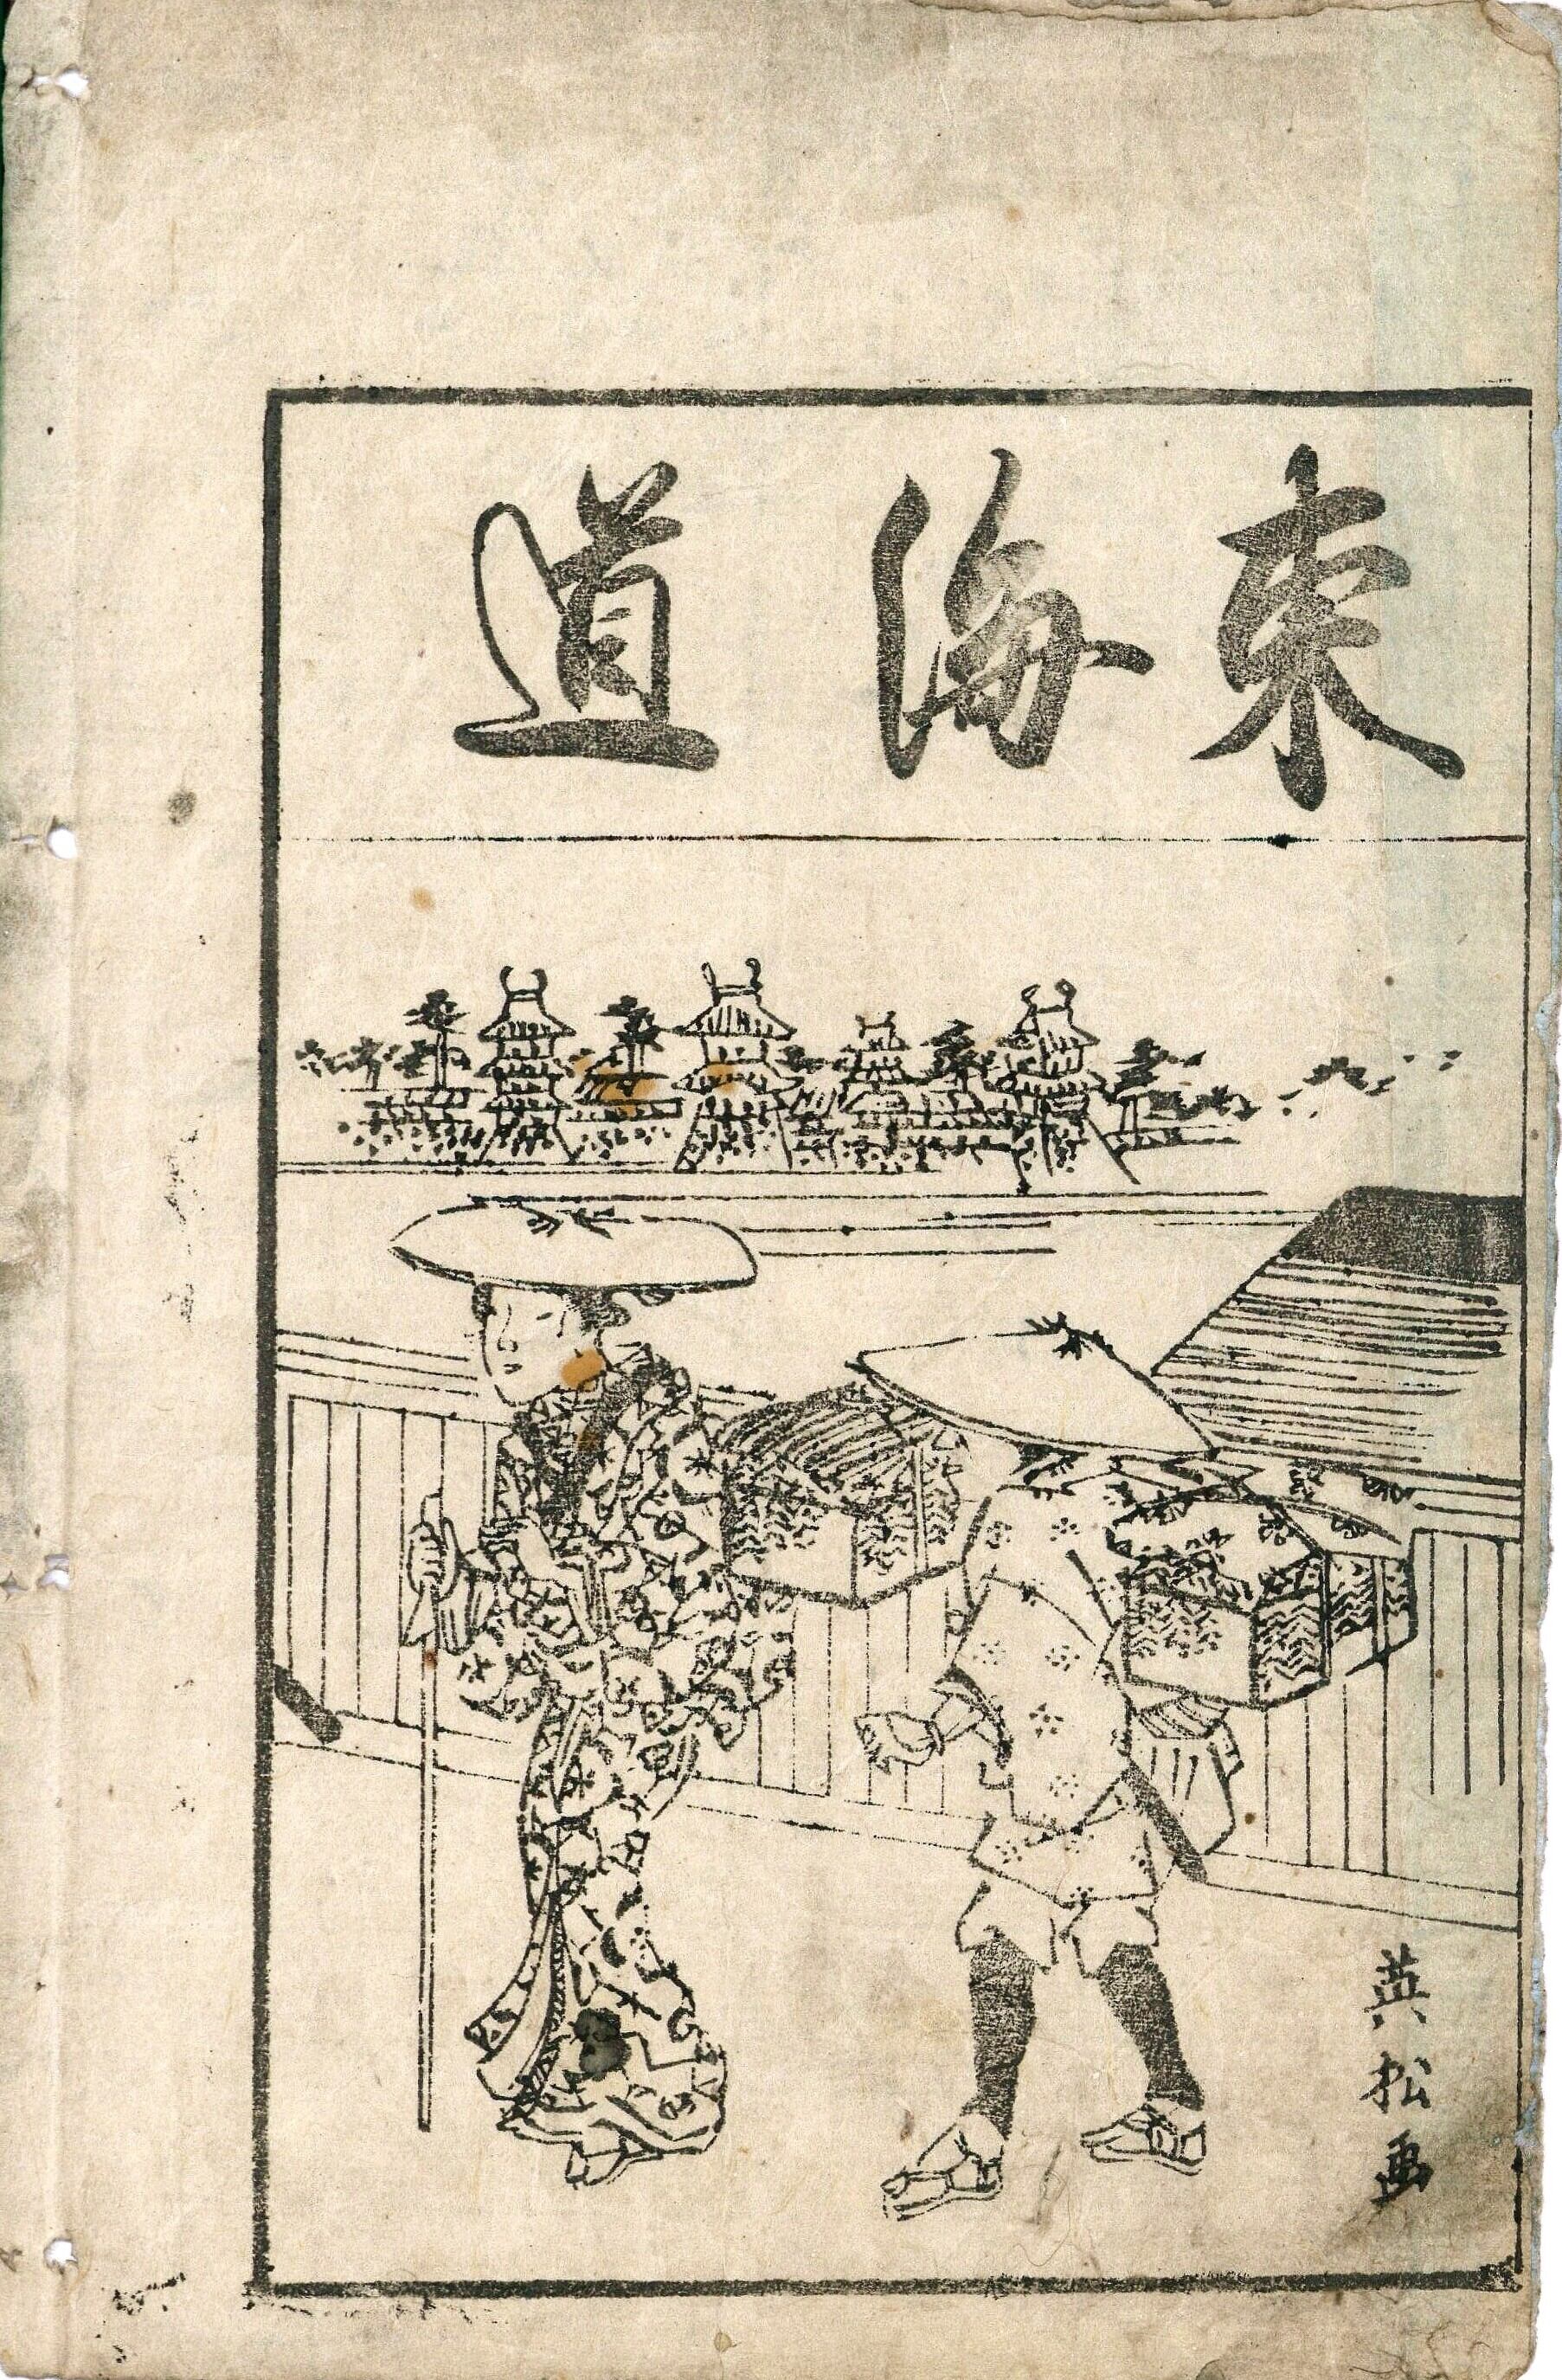 東海道
英松画